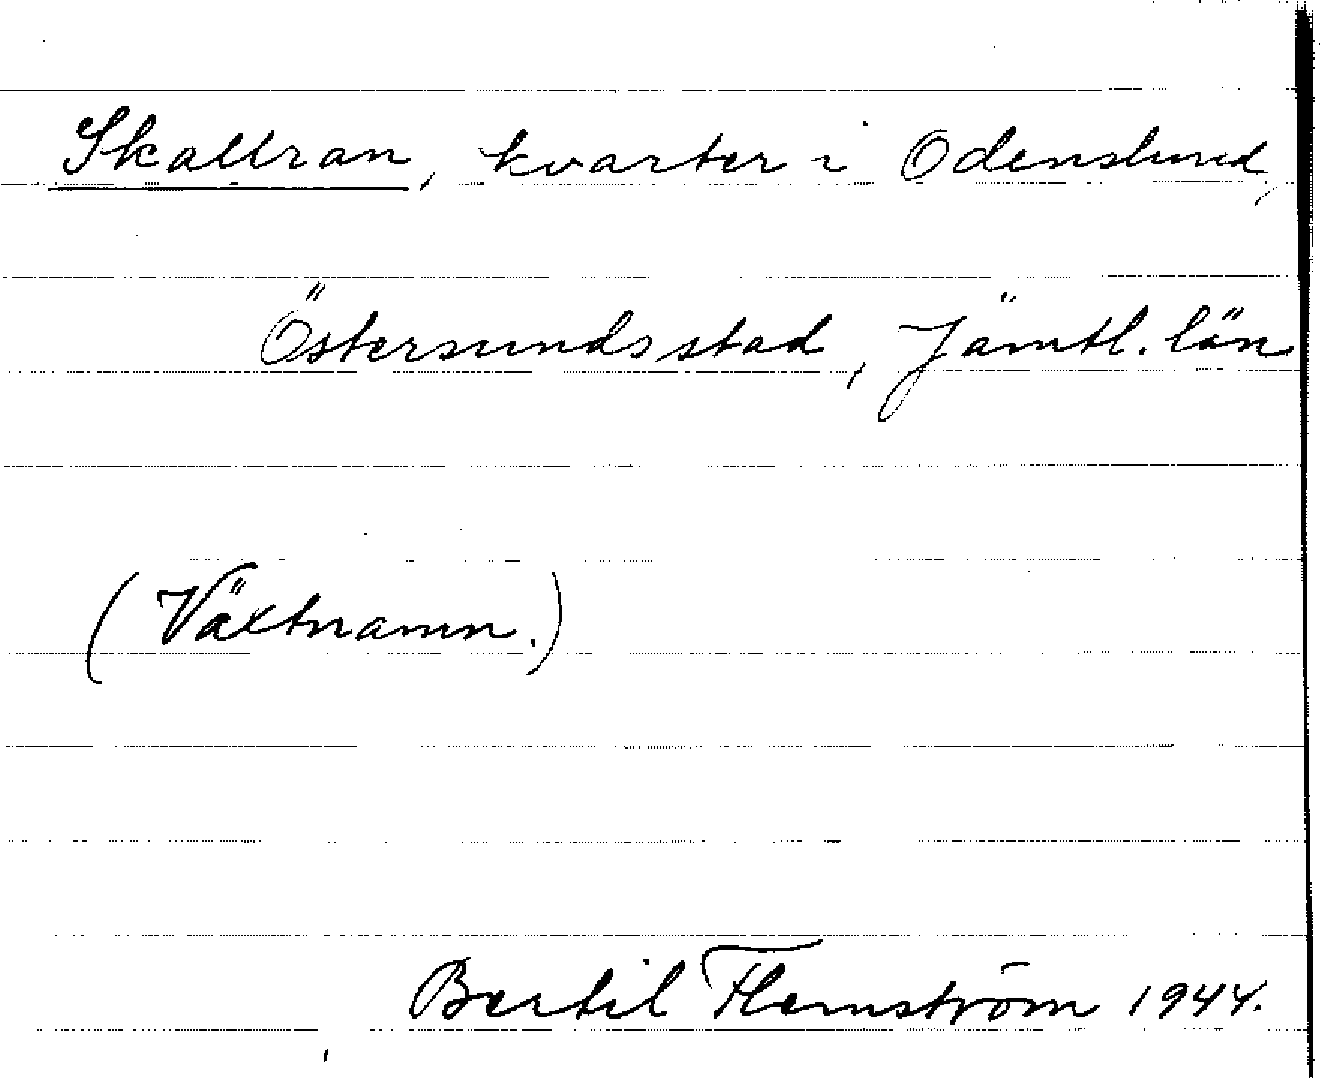 Skallran, kvarter i Odenslund,
Östersunds stad, Jämtl. län
(Växtnamn.)
Bertil Flemström 1944.